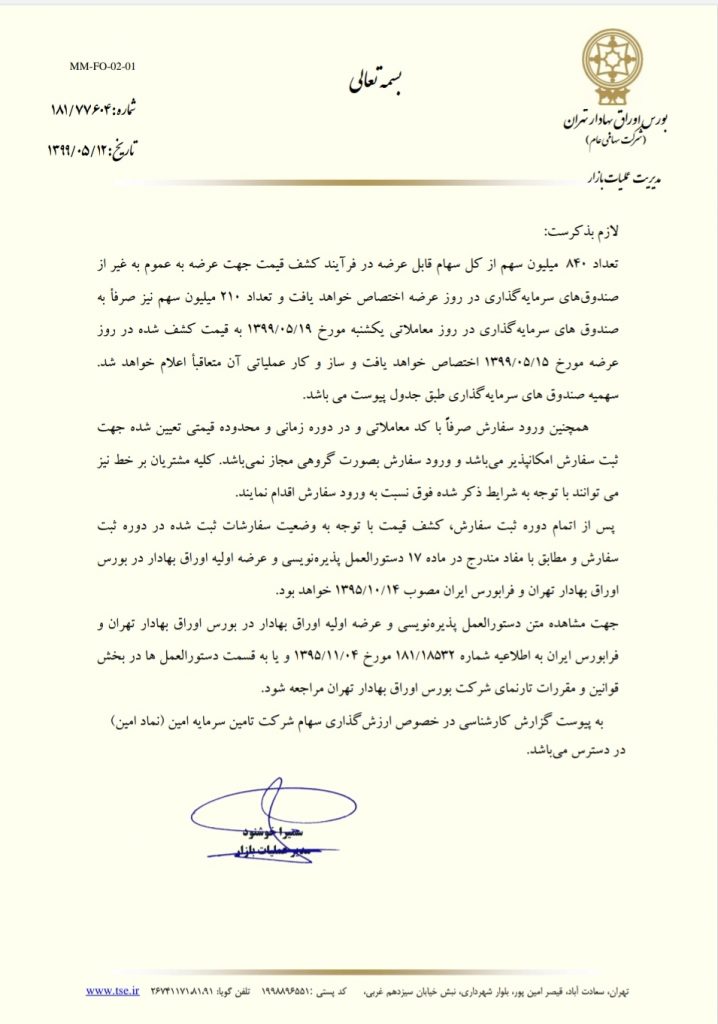 MM-FO-02-01
بسمه تعالی
شماره: ۱۸۱/۷۷۶۰۴
تاریخ: ۱۳۹۹/۰۵/۱۲
بورس اوراق بهادار تهران
(شرکت سهامی عام)
مدیریت عملیات بازار
لازم بذکرست:
تعداد ۸۴۰ میلیون سهم از کل سهام قابل عرضه در فرآیند کشف قیمت جهت عرضه به عموم به غیر از
صندوق‌های سرمایه‌گذاری در روز عرضه اختصاص خواهد یافت و تعداد ۲۱۰ میلیون سهم نیز صرفاً به
صندوق های سرمایه‌گذاری در روز معاملاتی یکشنبه مورخ ۱۳۹۹/۰۵/۱۹ به قیمت کشف شده در روز
عرضه مورخ ۱۳۹۹/۰۵/۱۵ اختصاص خواهد یافت و ساز و کار عملیاتی آن متعاقباً اعلام خواهد شد.
سهمیه صندوق های سرمایه‌گذاری طبق جدول پیوست می باشد.
همچنین ورود سفارش صرفاً با کد معاملاتی و در دوره زمانی و محدوده قیمتی تعیین شده جهت
ثبت سفارش امکانپذیر می‌باشد و ورود سفارش بصورت گروهی مجاز نمی‌باشد. کلیه مشتریان بر خط نیز
می توانند با توجه به شرایط ذکر شده فوق نسبت به ورود سفارش اقدام نمایند.
پس از اتمام دوره ثبت سفارش، کشف قیمت با توجه به وضعیت سفارشات ثبت شده در دوره ثبت
سفارش و مطابق با مفاد مندرج در ماده ۱۷ دستورالعمل پذیره‌نویسی و عرضه اولیه اوراق بهادار در بورس
اوراق بهادار تهران و فرابورس ایران مصوب ۱۳۹۵/۱۰/۱۴ خواهد بود.
جهت مشاهده متن دستورالعمل پذیره‌نویسی و عرضه اولیه اوراق بهادار در بورس اوراق بهادار تهران و
فرابورس ایران به اطلاعیه شماره ۱۸۱/۱۸۵۳۲ مورخ ۱۳۹۵/۱۱/۰۴ و یا به قسمت دستورالعمل ها در بخش
قوانین و مقررات تارنمای شرکت بورس اوراق بهادار تهران مراجعه شود.
به پیوست گزارش کارشناسی در خصوص ارزش‌گذاری سهام شرکت تامین سرمایه امین (نماد امین)
در دسترس می‌باشد.
سمیرا خوشنود
مدیر عملیات بازار
تهران، سعادت آباد، قیصر امین پور، بلوار شهرداری، نبش خیابان سیزدهم غربی، کد پستی :۱۹۹۸۸۹۶۵۵۱ تلفن گویا: ۲۶۷۴۱۱۷۱،۸۱،۹۱ www.tse.ir